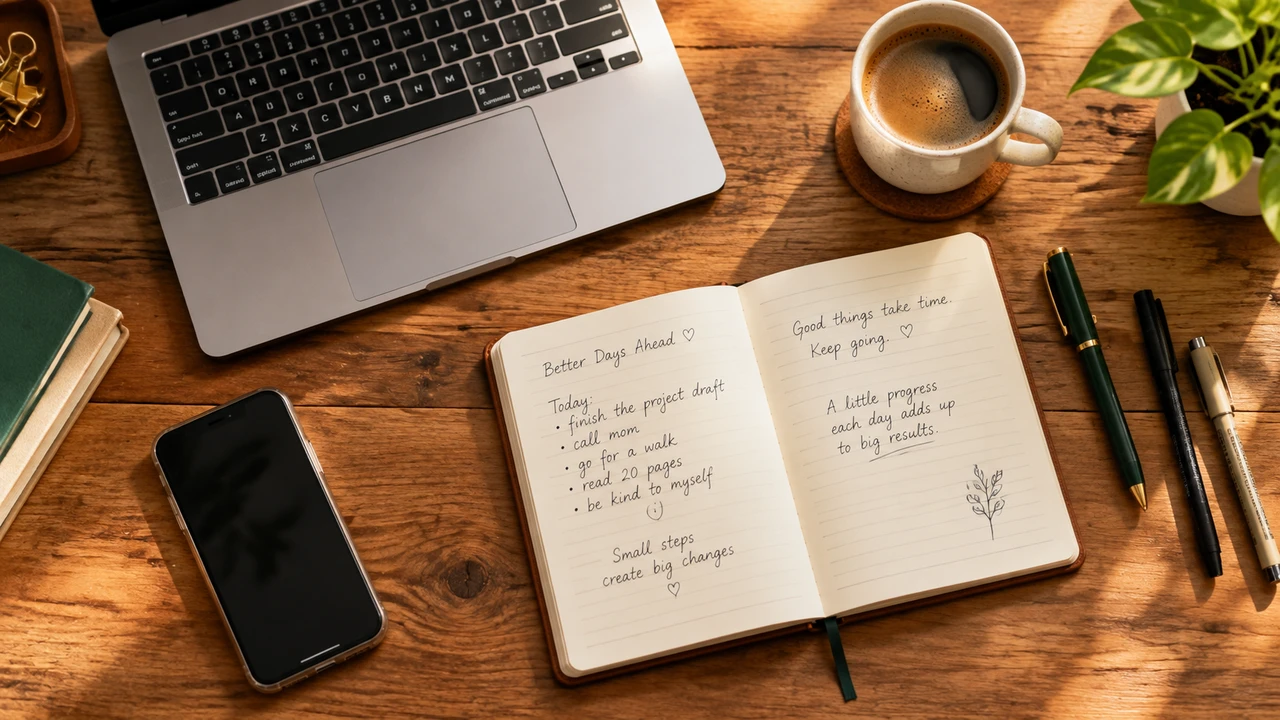 Better Days Ahead ♡
Today:
• finish the project draft
• call mom
• go for a walk
• read 20 pages
• be kind to myself
Small steps
create big changes
♡
Good things take time.
Keep going. ♡
A little progress
each day adds up
to big results.